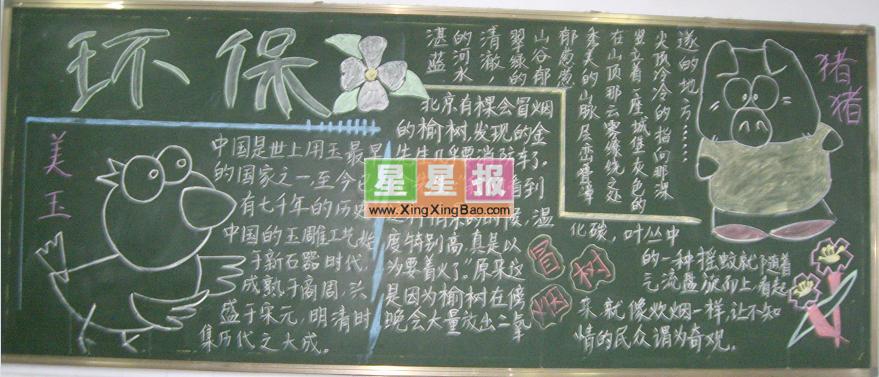 环保
美玉
中国是世上用玉最早
的国家之一，至今已
有七千年的历史
中国的玉雕工艺始
于新石器时代，
成熟于商周，兴
盛于宋元，明清时
集历代之大成。
湛蓝
的河水
清澈，
翠绿的
山谷郁
郁葱葱
秀美的山脉层峦叠嶂
在山顶那云雾缭绕之处
竖立着一座城堡灰色的
尖顶冷冷的指向那深
邃的地方……
猪猪
北京有棵会冒烟
的榆树，发现的金
先生几乎要消防车了。
看到
候，温
度特别高，真是以
为要着火了。”原来这
是因为榆树在傍
晚会大量放出二氧
化碳，叶丛中
的一种摇蚊就随着
气流盘旋而上，看起
来就像炊烟一样，让不知
情的民众谓为奇观。
冒烟树
星星报
www.XingXingBao.com